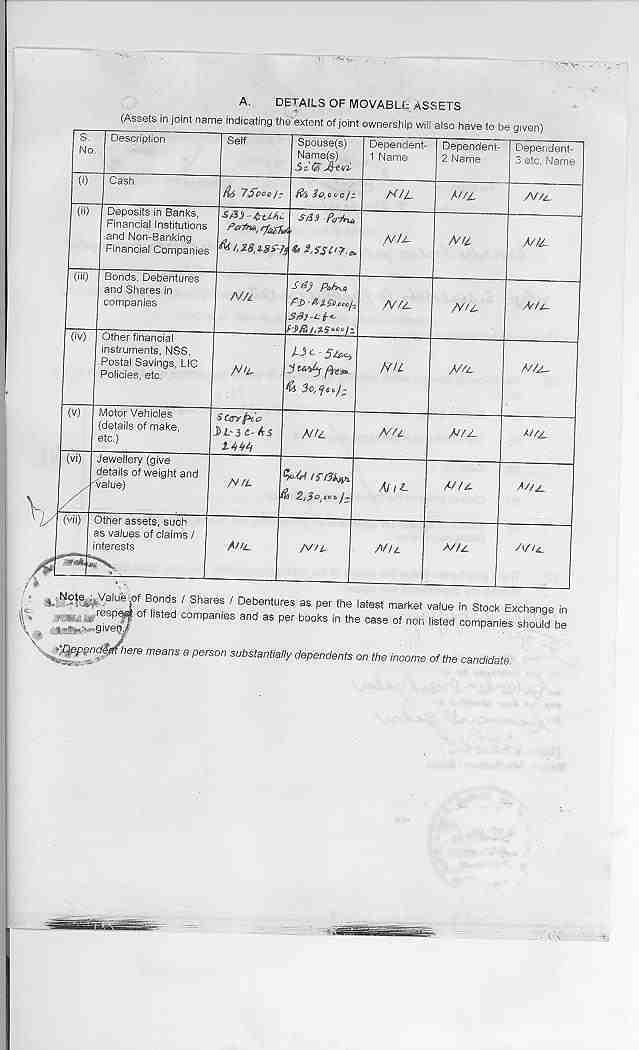 A. DETAILS OF MOVABLE ASSETS
(Assets in joint name indicating the extent of joint ownership will also have to be given)
S. No. Description Self Spouse(s) Name(s) Sita Devi Dependent-1 Name Dependent-2 Name Dependent-3 etc. Name
(i) Cash Rs 75000/= Rs 30,000/= NIL NIL NIL
(ii) Deposits in Banks, Financial Institutions and Non-Banking Financial Companies SBI-Delhi Patna, Rs 1,28,285-75 SBI Patna NIL NIL NIL
(iii) Bonds, Debentures and Shares in companies NIL SBI Patna FD NIL NIL NIL
(iv) Other financial instruments, NSS, Postal Savings, LIC Policies, etc. NIL LIC - 5 Lacs yearly Prem Rs 30,900/= NIL NIL NIL
(v) Motor Vehicles (details of make, etc.) Scorpio DL-3C-AS 2444 NIL NIL NIL NIL
(vi) Jewellery (give details of weight and value) NIL Gold Rs 2,30,000/= NIL NIL NIL
(vii) Other assets, such as values of claims / interests NIL NIL NIL NIL NIL
Note : Value of Bonds / Shares / Debentures as per the latest market value in Stock Exchange in
respect of listed companies and as per books in the case of non listed companies should be
given.
*Dependent here means a person substantially dependents on the income of the candidate.